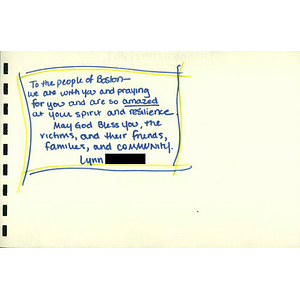 To the people of Boston—
we are with you and praying
for you and are so amazed
at your spirit and resilience.
May God Bless you, the
victims, and their friends,
families, and community.
Lynn